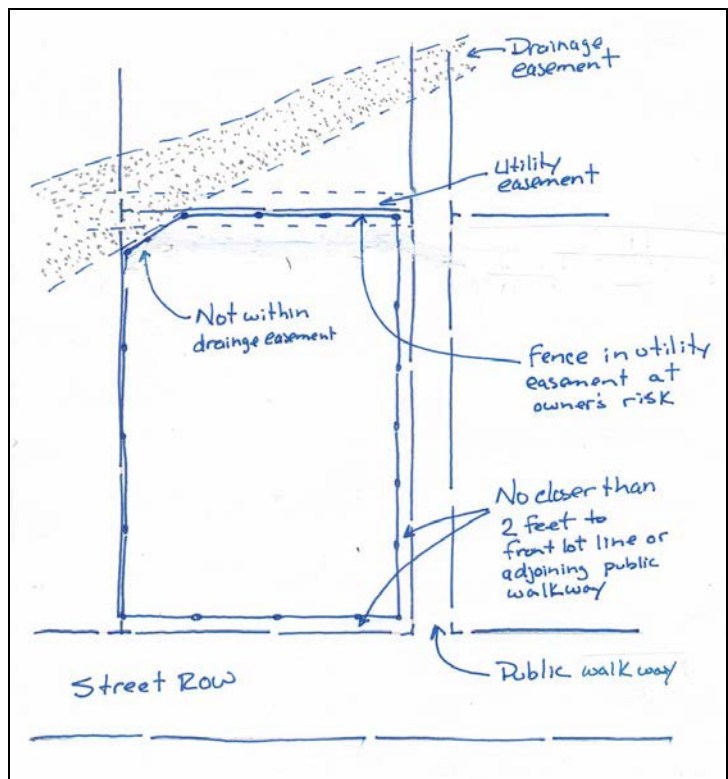 Drainage
easement
Utility
easement
Not within
drainge easement
Fence in utility
easement at
owner's risk
No closer than
2 feet to
front lot line or
adjoining public
walkway
Public walkway
Street ROW